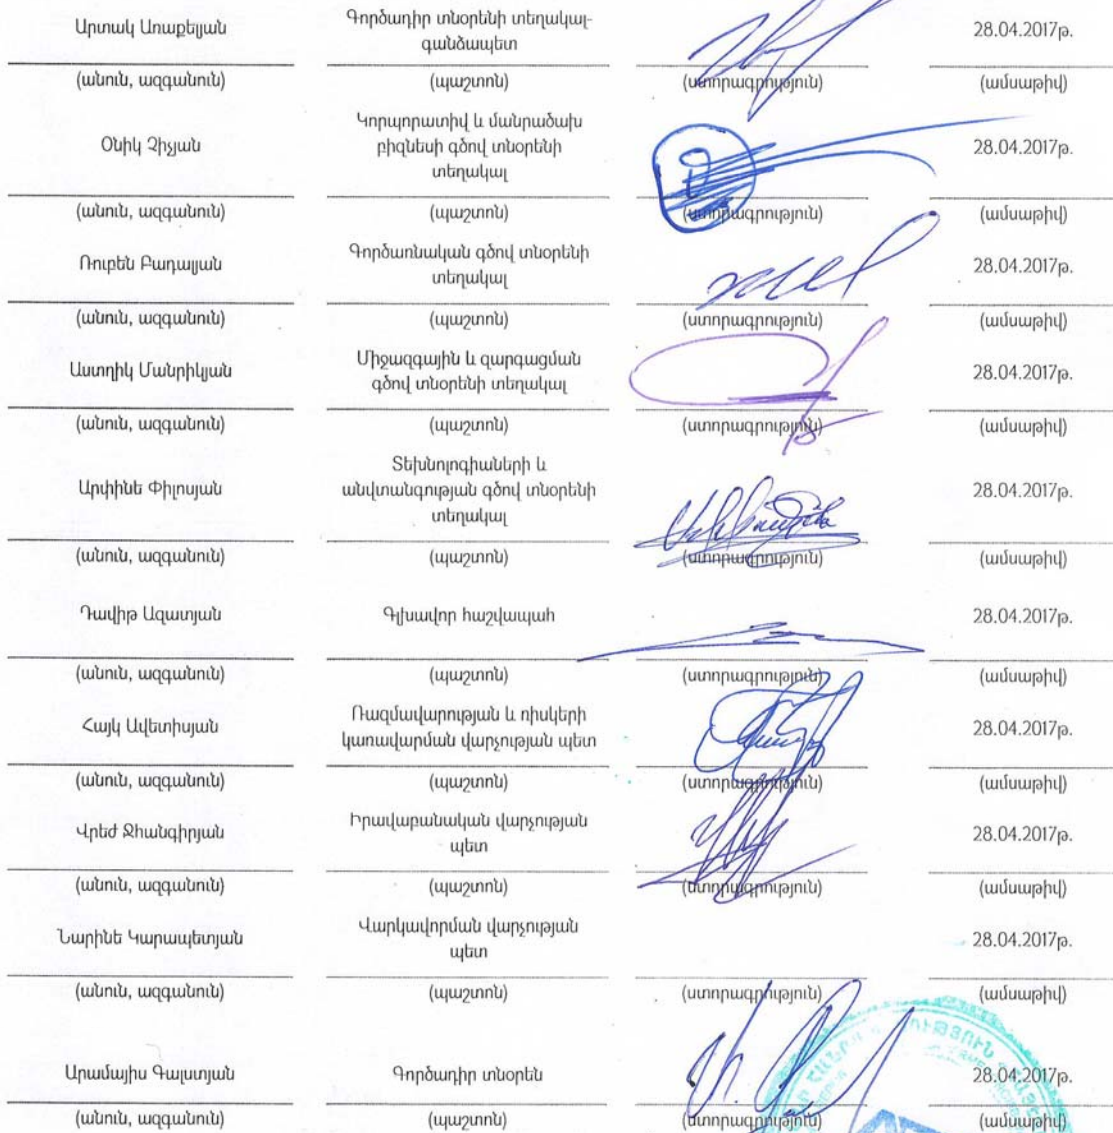 Արտակ Առաքելյան
Գործադիր տնօրենի տեղակալ-
գանձապետ
28.04.2017թ.
(անուն, ազգանուն)
(պաշտոն)
(ստորագրություն)
(ամսաթիվ)
Օնիկ Չիչյան
Կորպորատիվ և մանրածախ
բիզնեսի գծով տնօրենի
տեղակալ
28.04.2017թ.
(անուն, ազգանուն)
(պաշտոն)
(ստորագրություն)
(ամսաթիվ)
Ռուբեն Բադալյան
Գործառնական գծով տնօրենի
տեղակալ
28.04.2017թ.
(անուն, ազգանուն)
(պաշտոն)
(ստորագրություն)
(ամսաթիվ)
Աստղիկ Մանրիկյան
Միջազգային և զարգացման
գծով տնօրենի տեղակալ
28.04.2017թ.
(անուն, ազգանուն)
(պաշտոն)
(ստորագրություն)
(ամսաթիվ)
Արփինե Փիլոսյան
Տեխնոլոգիաների և
անվտանգության գծով տնօրենի
տեղակալ
28.04.2017թ.
(անուն, ազգանուն)
(պաշտոն)
(ստորագրություն)
(ամսաթիվ)
Դավիթ Ազատյան
Գլխավոր հաշվապահ
28.04.2017թ.
(անուն, ազգանուն)
(պաշտոն)
(ստորագրություն)
(ամսաթիվ)
Հայկ Ավետիսյան
Ռազմավարության և ռիսկերի
կառավարման վարչության պետ
28.04.2017թ.
(անուն, ազգանուն)
(պաշտոն)
(ստորագրություն)
(ամսաթիվ)
Վրեժ Ջհանգիրյան
Իրավաբանական վարչության
պետ
28.04.2017թ.
(անուն, ազգանուն)
(պաշտոն)
(ստորագրություն)
(ամսաթիվ)
Նարինե Կարապետյան
Վարկավորման վարչության
պետ
28.04.2017թ.
(անուն, ազգանուն)
(պաշտոն)
(ստորագրություն)
(ամսաթիվ)
Արամայիս Գալստյան
Գործադիր տնօրեն
28.04.2017թ.
(անուն, ազգանուն)
(պաշտոն)
(ստորագրություն)
(ամսաթիվ)